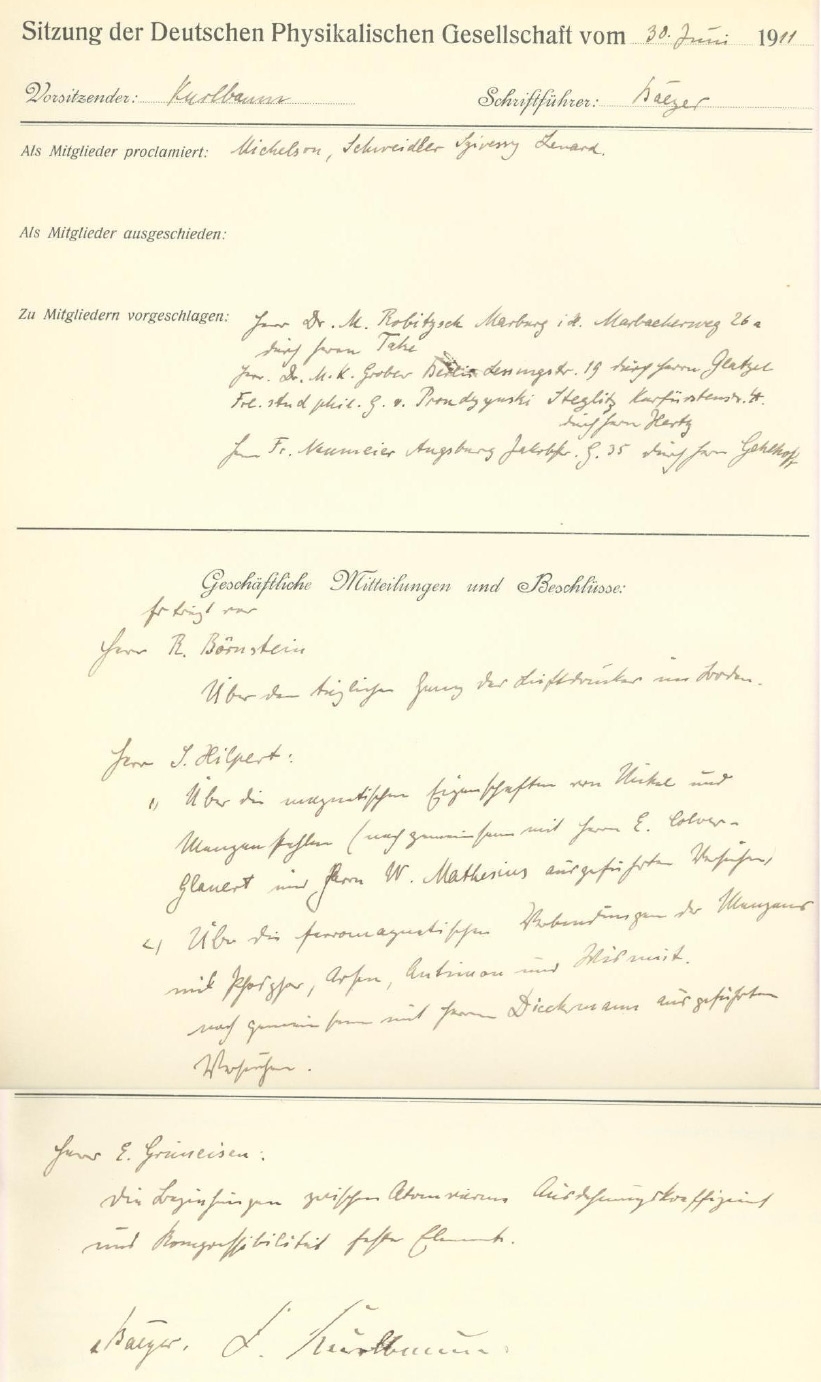 Sitzung der Deutschen Physikalischen Gesellschaft vom 30. Juni 1911
Vorsitzender: Kurlbaum Schriftführer: Baeyer
Als Mitglieder proclamiert: Michelson, Schweidler Szivessy Lenard.
Als Mitglieder ausgeschieden:
Zu Mitgliedern vorgeschlagen: Herr Dr. M. Robitzsch Marburg i.H. Marbacherweg 26a
durch Herrn Take
Herr Dr. M. K. Grober Lessingstr. 19 durch Herrn Glatzel
Frl. stud phil. G. v. Prondzynski Steglitz Kurfürstenstr. 4.
durch Herrn Hertz
Herr Fr. Neumeier Augsburg Jakobstr. G. 35 durch Herrn Gehlhoff
Geschäftliche Mitteilungen und Beschlüsse:
Es trägt vor
Herr R. Börnstein
Über den täglichen Gang des Luftdruckes im Boden.
Herr S. Hilpert:
1) Über die magnetischen Eigenschaften von Nickel und
Manganstahlen (nach gemeinsam mit Herrn E. Colver-
Glauert und Herrn W. Mathesius ausgeführten Versuchen)
2) Über die ferromagnetischen Verbindungen des Mangans
mit Phosphor, Arsen, Antimon und Wismut.
nach gemeinsam mit Herrn Dieckmann ausgeführten
Versuchen.
Herr E. Grüneisen:
Die Beziehungen zwischen Atomwärme Ausdehnungskoeffizient
und Kompressibilität fester Elemente.
Baeyer. F. Kurlbaum.